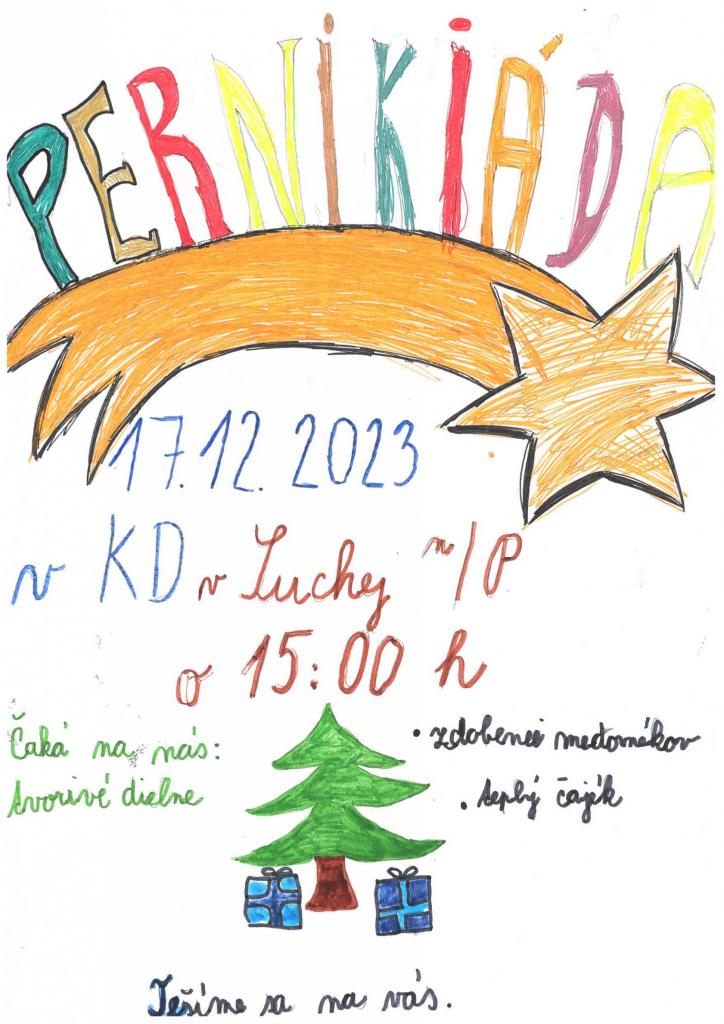 PERNIKIÁDA
17.12. 2023
v KD v Suchej n/P
o 15:00 h
Čaká na nás:
tvorivé dielne
• zdobenie medovníkov
• teplý čajík
Tešíme sa na vás.